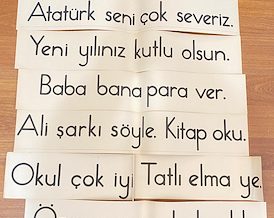 Atatürk seni çok severiz.
Yeni yılınız kutlu olsun.
Baba bana para ver.
Ali şarkı söyle. Kitap oku.
Okul çok iyi Tatlı elma ye.